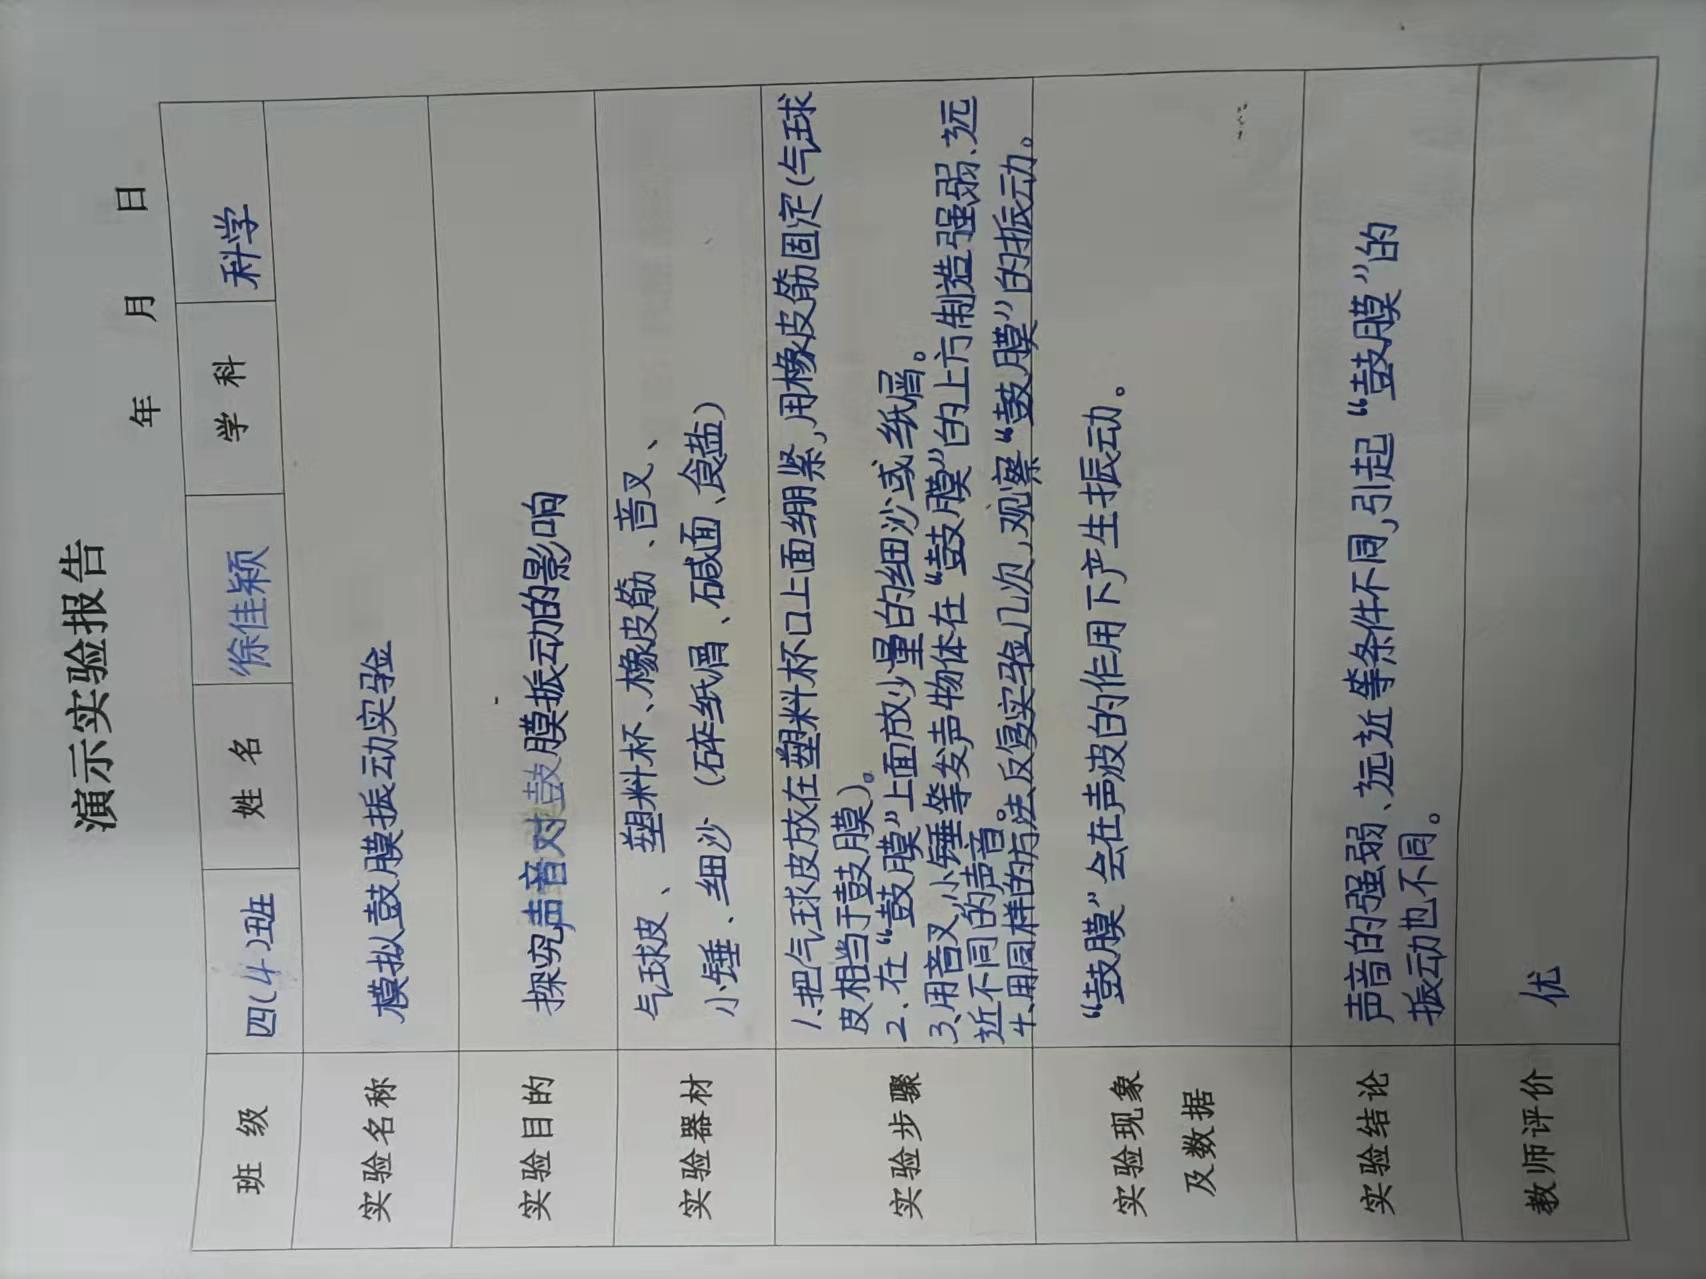 演示实验报告
年 月 日
班 级 四(4)班 姓 名 徐佳颖 学 科 科学
实验名称 模拟鼓膜振动实验
实验目的 探究声音对鼓膜振动的影响
实验器材 气球皮、塑料杯、橡皮筋、音叉、
小锤、细沙(碎纸屑、碱面、食盐)
实验步骤 1.把气球皮放在塑料杯口上面绷紧,用橡皮筋固定(气球
皮相当于鼓膜)。
2、在“鼓膜”上面放少量的细沙或纸屑。
3、用音叉、小锤等发声物体在“鼓膜”的上方制造强弱、远
近不同的声音。
4、用同样的方法反复实验几次,观察“鼓膜”的振动。
实验现象
及数据 “鼓膜”会在声波的作用下产生振动。
实验结论 声音的强弱、远近等条件不同,引起“鼓膜”的
振动也不同。
教师评价 优